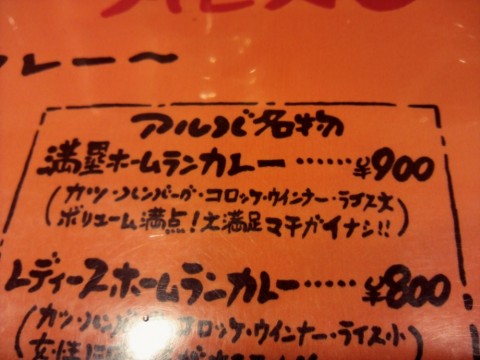 カレー〜
アルバ名物
満塁ホームランカレー……¥900
(カツ・ハンバーグ・コロッケ・ウインナー・ライス大
ボリューム満点!大満足マチガイナシ!!)
レディースホームランカレー……¥800
(カツ・ハンバーグ・コロッケ・ウインナー・ライス小
女性に